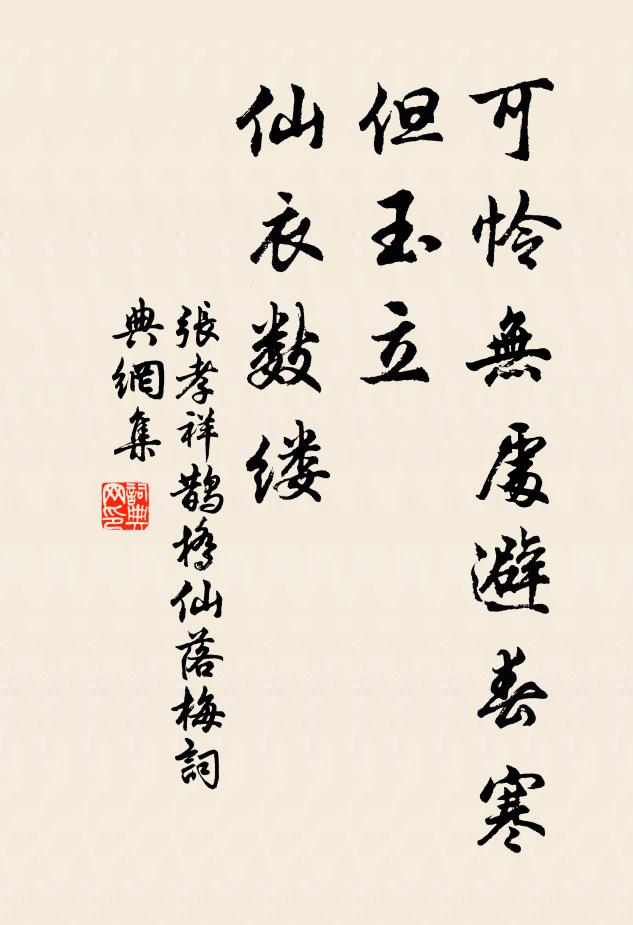 可怜無處避春寒
但玉立
仙衣数缕
張孝祥鵲橋仙落梅詞
典網集
詞典網印